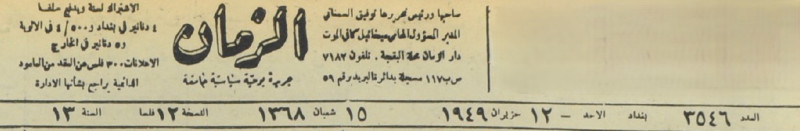 صاحبها ورئيس تحريرها توفيق السمعاني
المدير المسؤول المحامي ميخائيل كافي الموت
دار الزمان محلة البقچة . تلفون ٧١٨٢
ص ب ١١٧ مسجلة بدائرة البريد برقم ٥٩
الزمان
جريدة يومية سياسية جامعة
الاشتراك لسنة ويدفع سلفا
٤ دنانير في بغداد و ٤/٥٠٠ في الالوية
و٥ دنانير في الخارج
الاعلانات ٣٠٠ فلس عن العقد من العامود
الدائمية يراجع بشأنها الادارة
العدد ٣٥٤٦ بغداد الاحد – ١٢ حزيران ١٩٤٩ ١٥ شعبان ١٣٦٨ النسخة ١٢ فلسا السنة ١٣